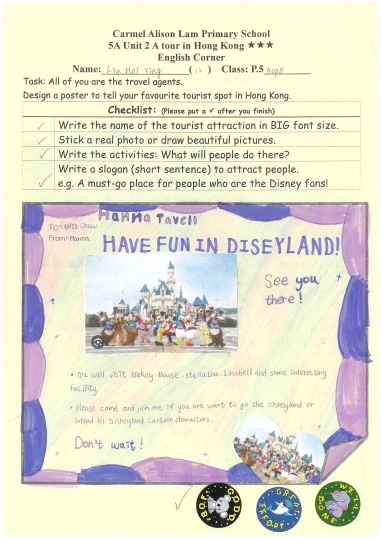 Carmel Alison Lam Primary School
5A Unit 2 A tour in Hong Kong ★★★
English Corner
Name: Liu Hoi Ying (12) Class: P.5 Hope
Task: All of you are the travel agents.
Design a poster to tell your favourite tourist spot in Hong Kong.
Checklist: (Please put a ✓ after you finish)
✓ Write the name of the tourist attraction in BIG font size.
✓ Stick a real photo or draw beautiful pictures.
✓ Write the activities: What will people do there?
Write a slogan (short sentence) to attract people.
✓ e.g. A must-go place for people who are the Disney fans!
Hanna Tavell
To=Miss Chow
From=Hanna
HAVE FUN IN DISEYLAND!
See you
there!
• You will visit Mickey Mouse, stellalou, Linabell and some interesting
facility.
• Please come and join me if you are want to go the Disneyland or
intead in Disneyland cartoon characters.
Don't wait!
GOOD JOB
GREAT EFFORT
WELL DONE